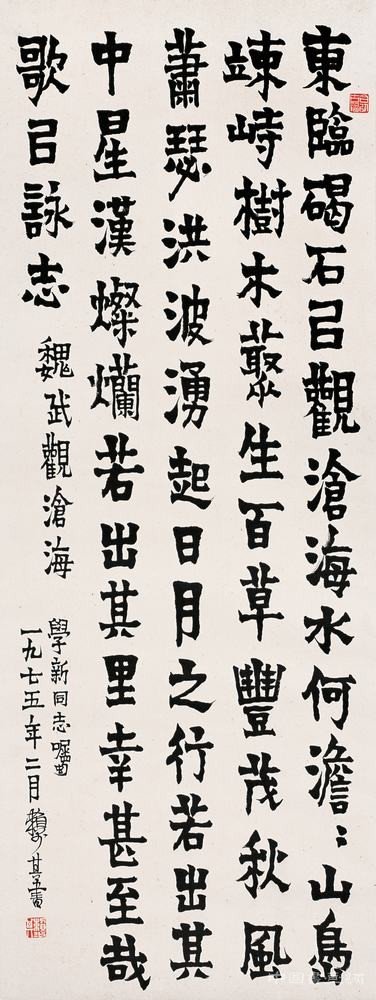 東臨碣石㠯觀滄海水何澹〻山島
竦峙樹木叢生百草豐茂秋風
蕭瑟洪波湧起日月之行若出其
中星漢燦爛若出其里幸甚至哉
歌㠯詠志
魏武觀滄海
學新同志囑
一九七五年二月賴少其書